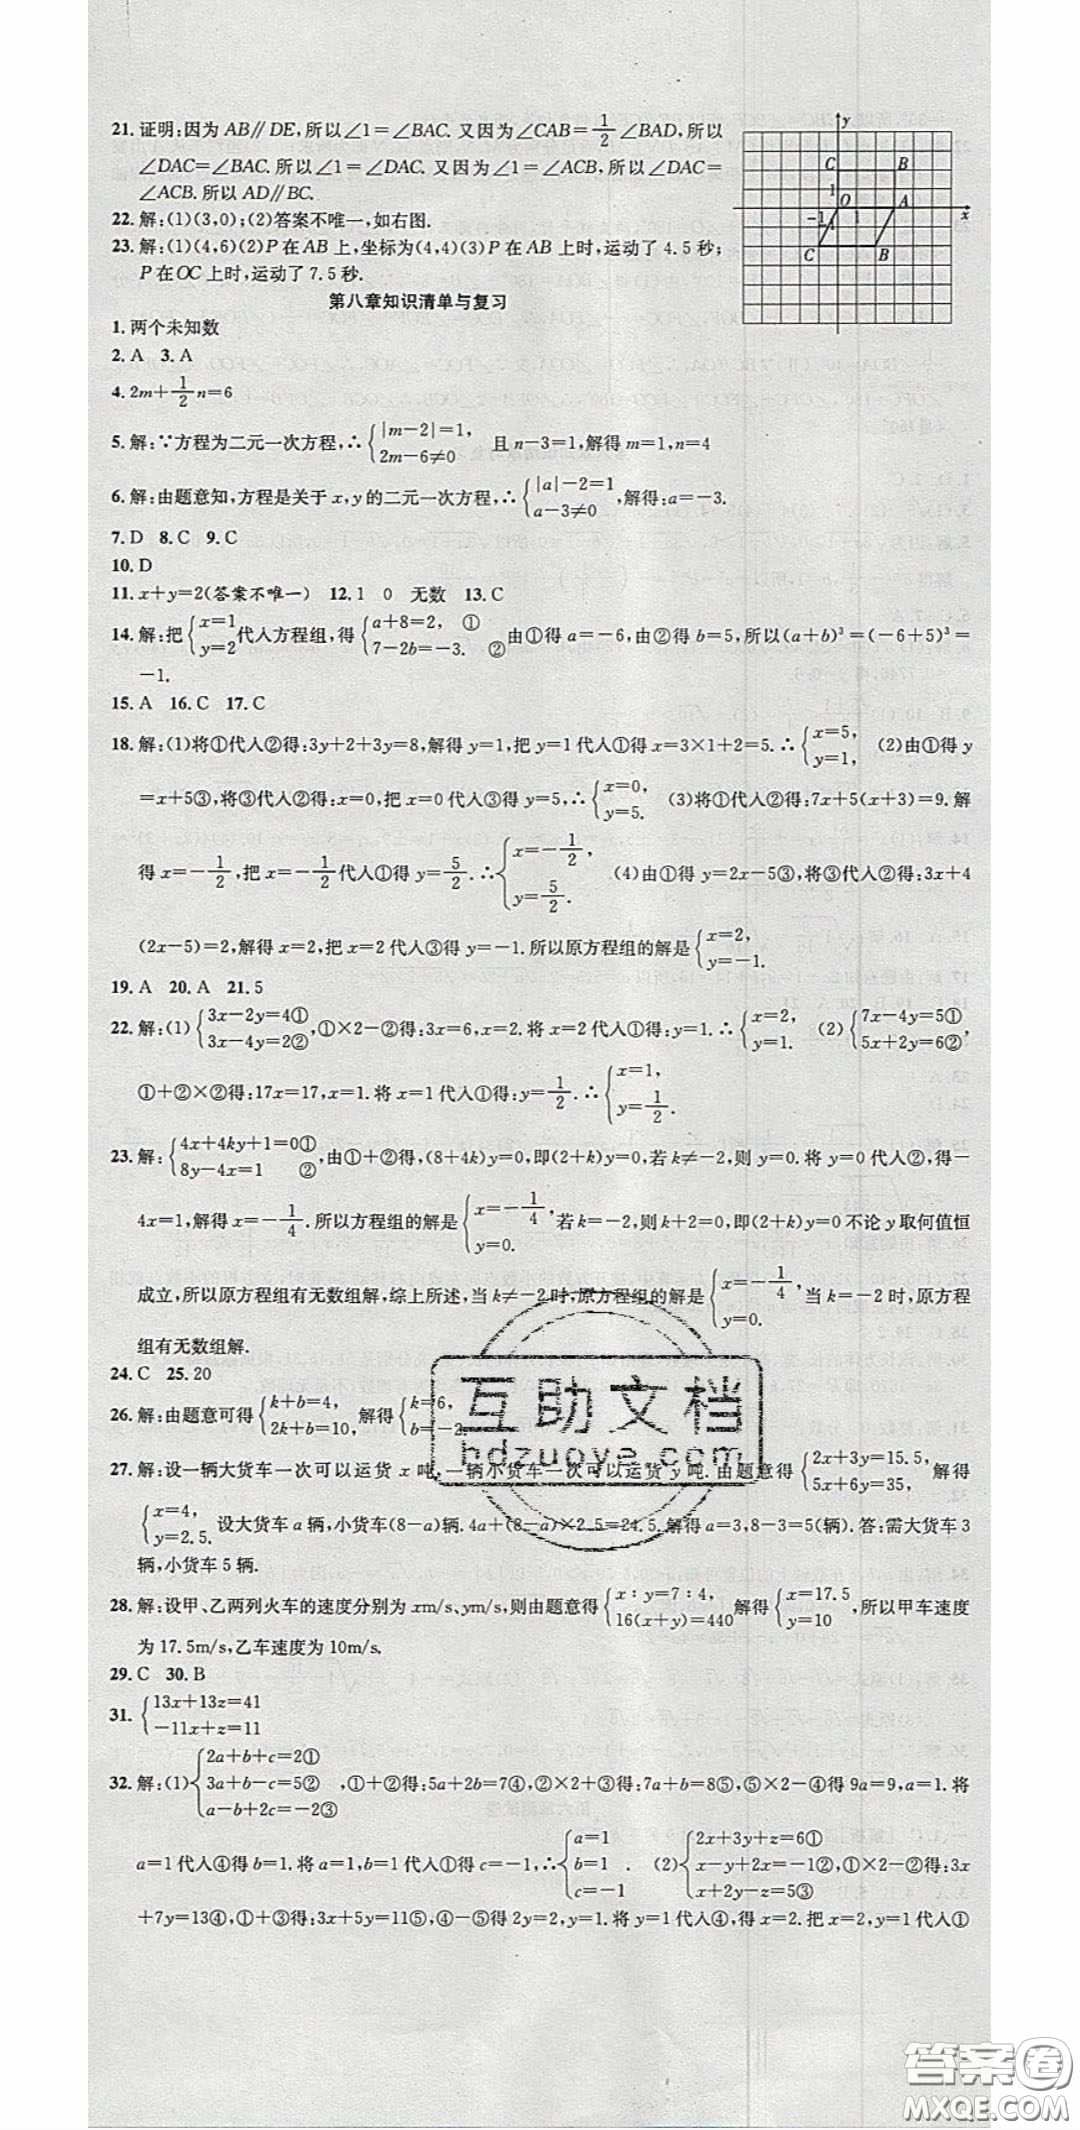 21. 证明:因为 AB∥DE,所以∠1=∠BAC. 又因为∠CAB=1/2∠BAD,所以
∠DAC=∠BAC. 所以∠1=∠DAC. 又因为∠1=∠ACB,所以∠DAC=
∠ACB. 所以 AD∥BC.
22. 解:(1)(3,0);(2)答案不唯一,如右图.
23. 解:(1)(4,6)(2)P 在 AB 上,坐标为(4,4)(3)P 在 AB 上时,运动了 4.5 秒;
P 在 OC 上时,运动了 7.5 秒.
y
C B
1
O A
-1 x
C B
第八章知识清单与复习
1. 两个未知数
2. A 3. A
4. 2m+1/2n=6
5. 解:∵方程为二元一次方程,∴{|m-2|=1, 2m-6≠0 且 n-3=1,解得 m=1,n=4
6. 解:由题意知,方程是关于 x,y 的二元一次方程,∴{|a|-2=1 a-3≠0,解得:a=-3.
7. D 8. C 9. C
10. D
11. x+y=2(答案不唯一) 12. 1 0 无数 13. C
14. 解:把{x=1 y=2代人方程组,得{a+8=2, ① 7-2b=-3. ②由①得 a=-6,由②得 b=5,所以(a+b)³=(-6+5)³=
-1.
15. A 16. C 17. C
18. 解:(1)将①代人②得:3y+2+3y=8,解得 y=1,把 y=1 代人①得 x=3×1+2=5. ∴{x=5, y=1, (2)由①得 y
=x+5③,将③代人②得:x=0,把 x=0 代人③得 y=5,∴{x=0, y=5. (3)将①代人②得:7x+5(x+3)=9. 解
得 x=-1/2,把 x=-1/2代人①得 y=5/2. ∴{x=-1/2, y=5/2. (4)由①得 y=2x-5③,将③代人②得:3x+4
(2x-5)=2,解得 x=2,把 x=2 代人③得 y=-1. 所以原方程组的解是{x=2, y=-1.
19. A 20. A 21. 5
22. 解:(1){3x-2y=4① 3x-4y=2②,①×2-②得:3x=6,x=2. 将 x=2 代人①得:y=1. ∴{x=2, y=1. (2){7x-4y=5① 5x+2y=6②,
①+②×②得:17x=17,x=1. 将 x=1 代人①得:y=1/2. ∴{x=1, y=1/2.
23. 解:{4x+4ky+1=0① 8y-4x=1 ②,由①+②得,(8+4k)y=0,即(2+k)y=0,若 k≠-2,则 y=0. 将 y=0 代人②,得-
4x=1,解得 x=-1/4. 所以方程组的解是{x=-1/4, y=0. 若 k=-2,则 k+2=0,即(2+k)y=0 不论 y 取何值恒
成立,所以原方程组有无数组解,综上所述,当 k≠-2 时,原方程组的解是{x=-1/4, y=0. 当 k=-2 时,原方程
组有无数组解.
24. C 25. 20
26. 解:由题意可得{k+b=4, 2k+b=10, 解得{k=6, b=-2
27. 解:设一辆大货车一次可以运货 x 吨,一辆小货车一次可以运货 y 吨. 由题意得{2x+3y=15.5, 5x+6y=35, 解得
{x=4, y=2.5. 设大货车 a 辆,小货车(8-a)辆. 4a+(8-a)×2.5=24.5. 解得 a=3,8-3=5(辆). 答:需大货车 3
辆,小货车 5 辆.
28. 解:设甲、乙两列火车的速度分别为 xm/s、ym/s,则由题意得{x∶y=7∶4, 16(x+y)=440 解得{x=17.5 y=10 ,所以甲车速度
为 17.5m/s,乙车速度为 10m/s.
29. C 30. B
31. {13x+13z=41 -11x+z=11
32. 解:(1){2a+b+c=2① 3a+b-c=5② a-b+2c=-2③ ,①+②得:5a+2b=7④,②×2+③得:7a+b=8⑤,⑤×2-④得 9a=9,a=1. 将
a=1 代人④得 b=1. 将 a=1,b=1 代人①得 c=-1,∴{a=1 b=1 c=-1 . (2){2x+3y+z=6① x-y+2z=-1② x+2y-z=5③ ,①×2-②得:3x
+7y=13④,①+③得:3x+5y=11⑤,④-⑤得 2y=2,y=1. 将 y=1 代人④,得 x=2. 把 x=2,y=1 代人①
互助文档
hdzuoye.com
答案圈
MXQE.COM